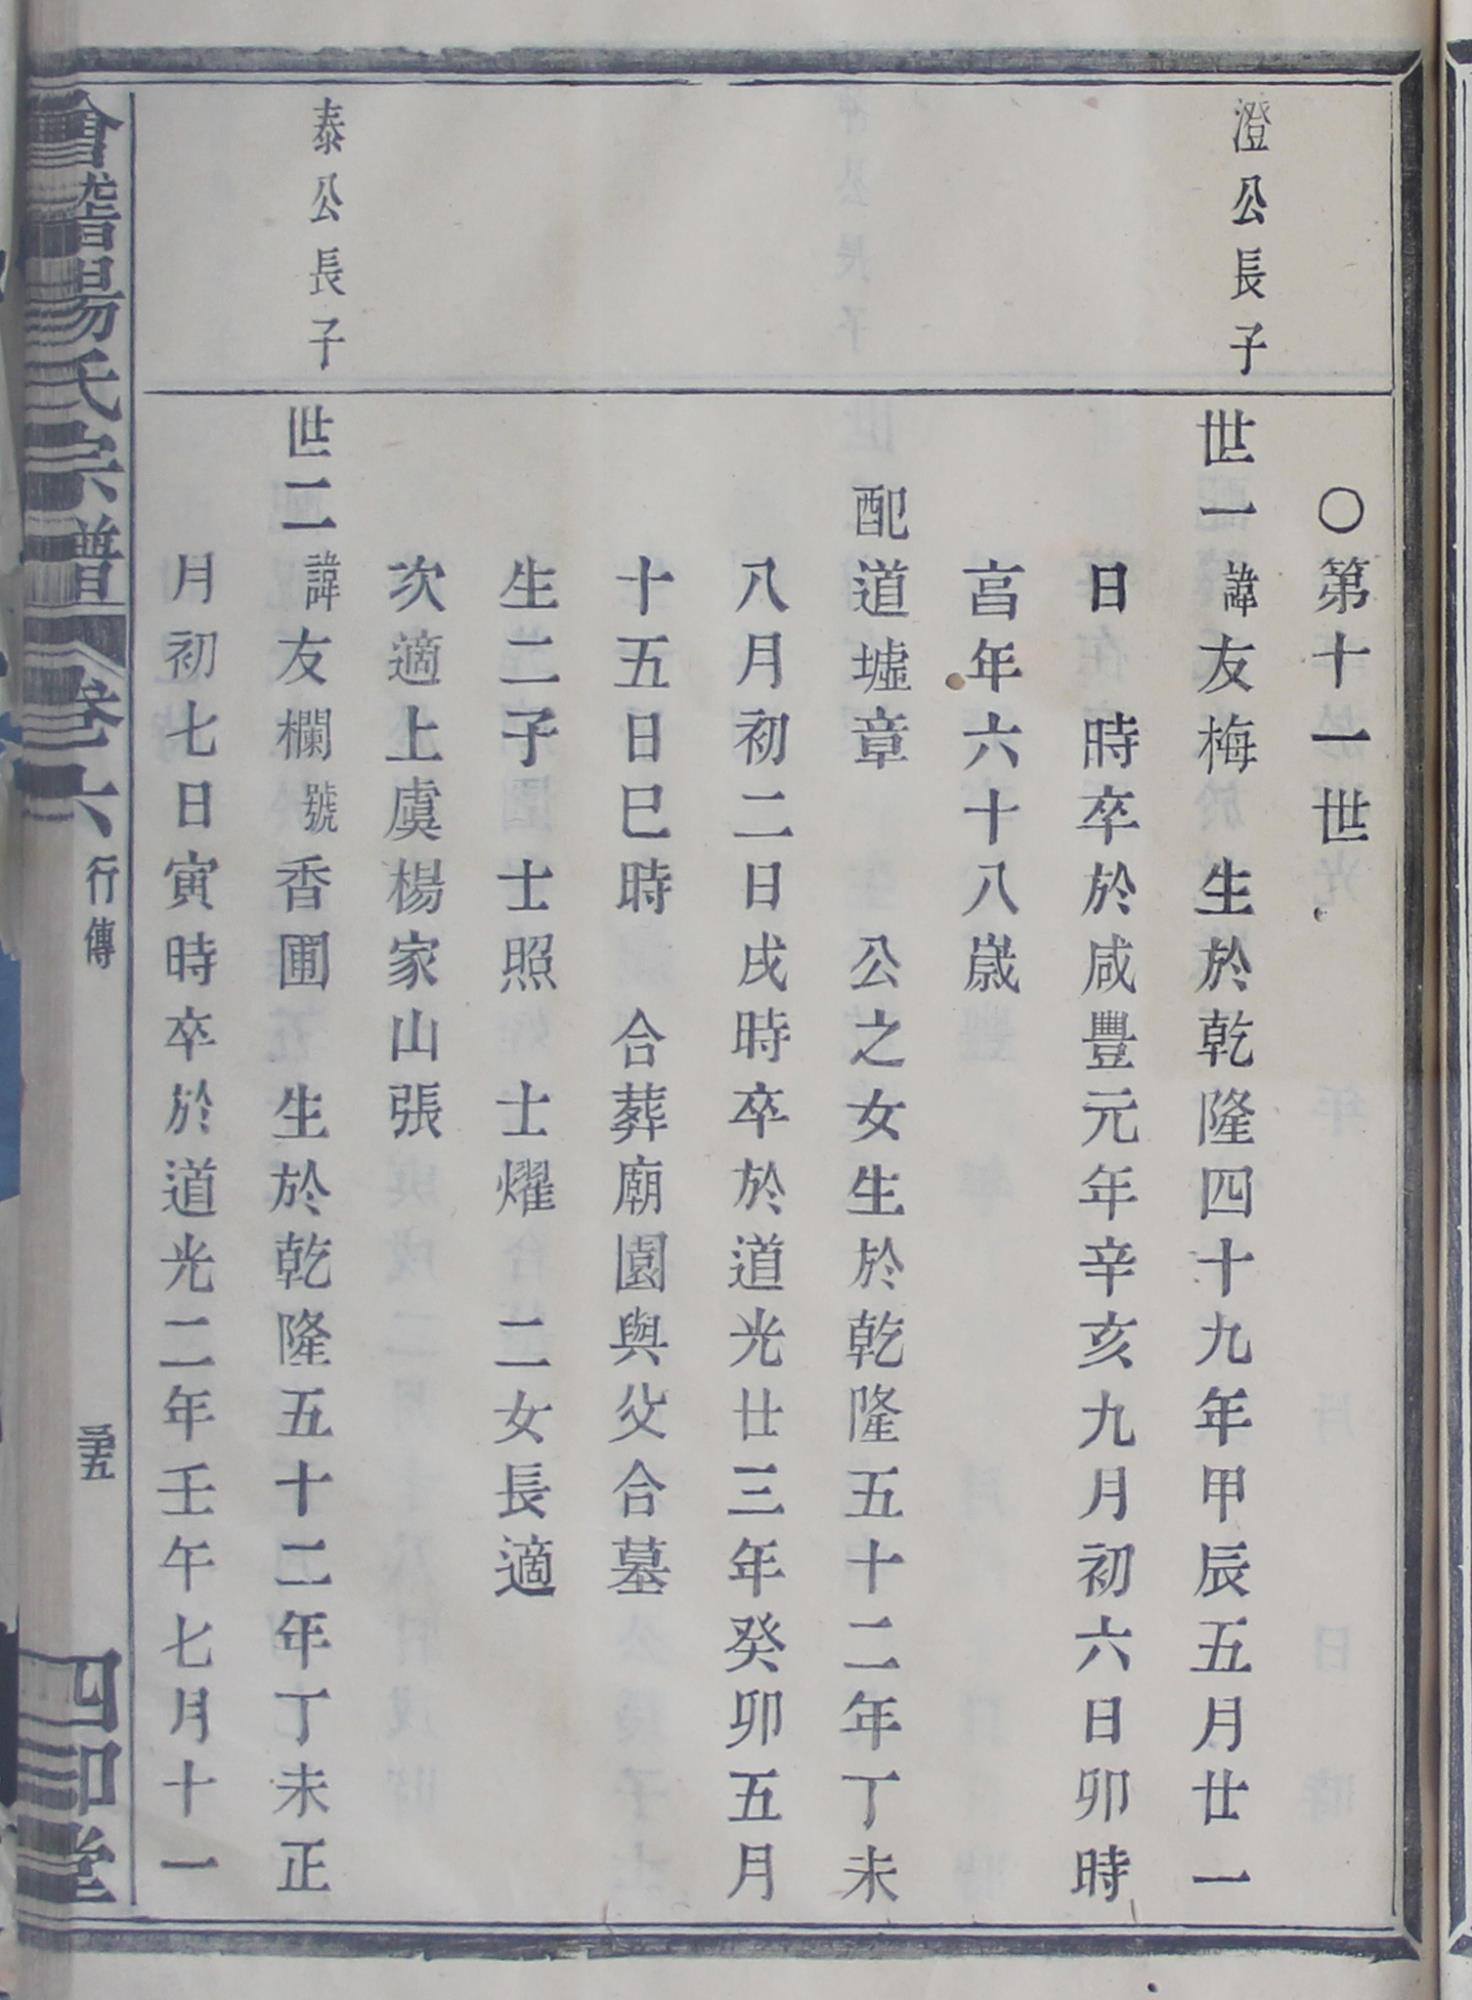 ○第十一世
澄公長子
世一諱友梅　生於乾隆四十九年甲辰五月廿一
日　時卒於咸豐元年辛亥九月初六日卯時
亯年六十八歲
配道墟章　公之女生於乾隆五十二年丁未
八月初二日戌時卒於道光廿三年癸卯五月
十五日巳時　合葬廟園與父合墓
生二子士照　士燿　二女長適
次適上虞楊家山張
泰公長子
世二諱友欄號香圃　生於乾隆五十二年丁未正
月初七日寅時卒於道光二年壬午七月十一
會稽楊氏宗譜　卷六　行傳　三十五　四知堂